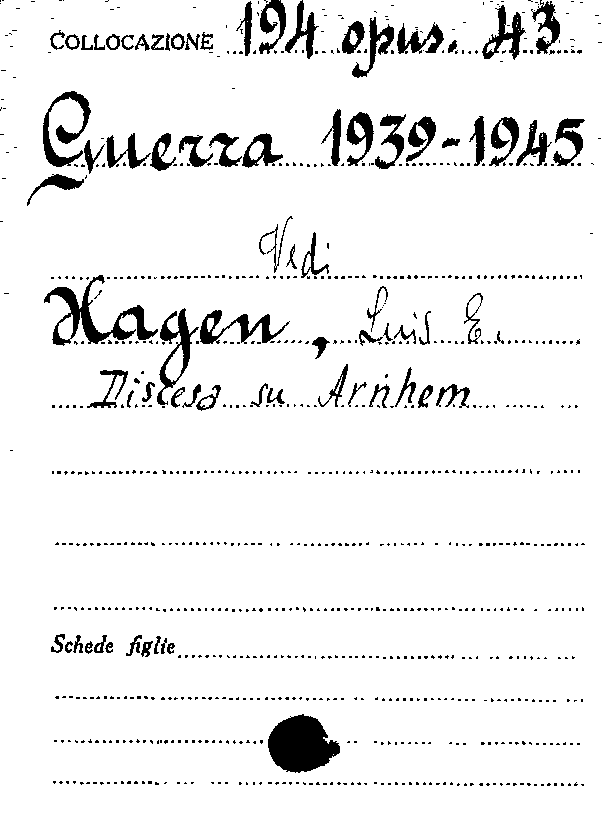 COLLOCAZIONE 194 opus. 43
Guerra 1939-1945
Vedi
Hagen, Luis E.
Discesa su Arnhem
Schede figlie